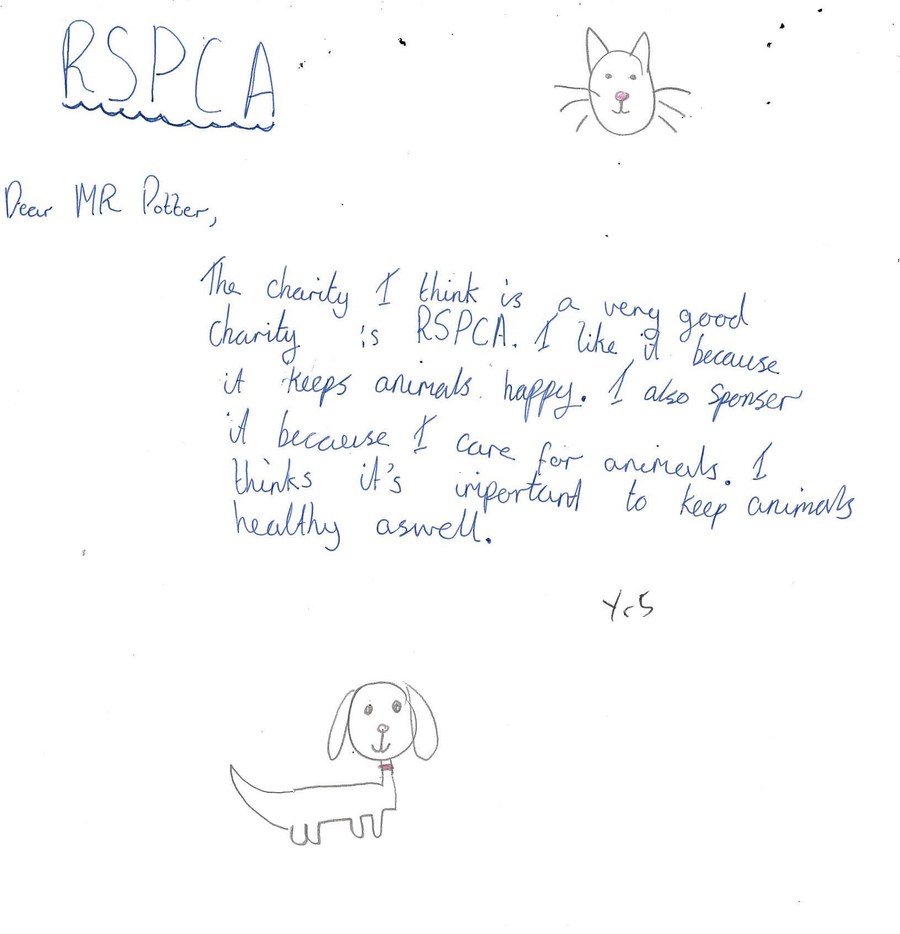 RSPCA
Dear MR Potter,
The charity I think is a very good
charity is RSPCA. I like it because
it keeps animals happy. I also sponser
it because I care for animals. I
thinks it's important to keep animals
healthy aswell.
Yr5